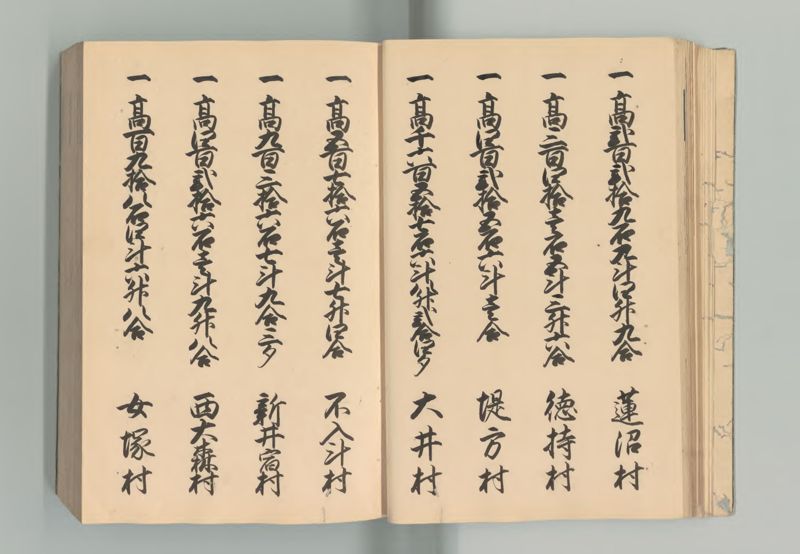 一 高弐百弐拾九石九斗四升九合 蓮沼村
一 高三百四拾壱石五斗三升六合 徳持村
一 高四百弐拾五石六斗壱合 堤方村
一 高千六百五拾七石六斗八升弐合四夕 大井村
一 高五百七拾六石壱斗七升四合 不入斗村
一 高九百三拾六石七斗九合三夕 新井宿村
一 高四百弐拾六石壱斗九升八合 西大森村
一 高百九拾八石四斗六升八合 女塚村